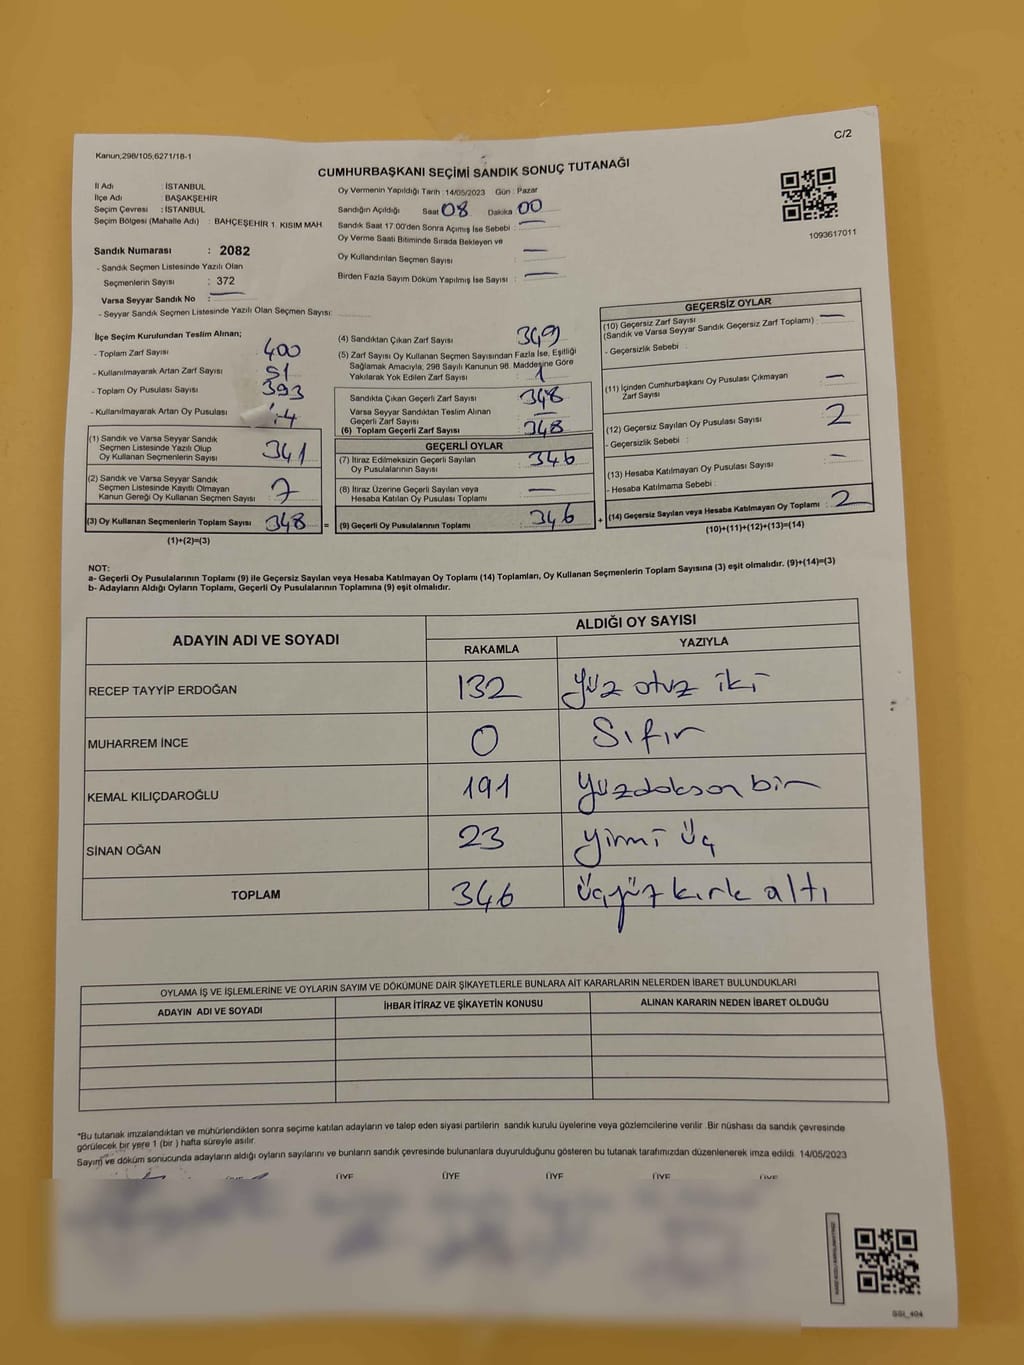 C/2
Kanun;298/105,6271/18-1
CUMHURBAŞKANI SEÇİMİ SANDIK SONUÇ TUTANAĞI
İl Adı : İSTANBUL
İlçe Adı : BAŞAKŞEHİR
Seçim Çevresi : İSTANBUL
Seçim Bölgesi (Mahalle Adı) : BAHÇEŞEHİR 1. KISIM MAH.
Sandık Numarası : 2082
- Sandık Seçmen Listesinde Yazılı Olan
Seçmenlerin Sayısı : 372
Varsa Seyyar Sandık No : —
- Seyyar Sandık Seçmen Listesinde Yazılı Olan Seçmen Sayısı:
Oy Vermenin Yapıldığı Tarih : 14/05/2023 Gün : Pazar
Sandığın Açıldığı Saat 08 Dakika 00
Sandık Saat 17.00'den Sonra Açımış İse Sebebi : —
Oy Verme Saati Bitiminde Sırada Bekleyen ve
Oy Kullandırılan Seçmen Sayısı : —
Birden Fazla Sayım Döküm Yapılmış İse Sayısı : —
1093617011
İlçe Seçim Kurulundan Teslim Alınan;
- Toplam Zarf Sayısı : 400
- Kullanılmayarak Artan Zarf Sayısı : 51
- Toplam Oy Pusulası Sayısı : 393
- Kullanılmayarak Artan Oy Pusulası
(1) Sandık ve Varsa Seyyar Sandık
Seçmen Listesinde Yazılı Olup
Oy Kullanan Seçmenlerin Sayısı : 341
(2) Sandık ve Varsa Seyyar Sandık
Seçmen Listesinde Kayıtlı Olmayan
Kanun Gereği Oy Kullanan Seçmen Sayısı : 7
(3) Oy Kullanan Seçmenlerin Toplam Sayısı : 348 =
(1)+(2)=(3)
(4) Sandıktan Çıkan Zarf Sayısı : 349
(5) Zarf Sayısı Oy Kullanan Seçmen Sayısından Fazla İse, Eşitliği
Sağlamak Amacıyla, 298 Sayılı Kanunun 98. Maddesine Göre
Yakılarak Yok Edilen Zarf Sayısı : 1
Sandıkta Çıkan Geçerli Zarf Sayısı : 348
Varsa Seyyar Sandıktan Teslim Alınan
Geçerli Zarf Sayısı : —
(6) Toplam Geçerli Zarf Sayısı : 348
GEÇERLİ OYLAR
(7) İtiraz Edilmeksizin Geçerli Sayılan
Oy Pusulalarının Sayısı : 346
(8) İtiraz Üzerine Geçerli Sayılan veya
Hesaba Katılan Oy Pusulası Toplamı : —
(9) Geçerli Oy Pusulalarının Toplamı : 346 +
GEÇERSİZ OYLAR
(10) Geçersiz Zarf Sayısı : —
(Sandık ve Varsa Seyyar Sandık Geçersiz Zarf Toplamı)
- Geçersizlik Sebebi :
(11) İçinden Cumhurbaşkanı Oy Pusulası Çıkmayan
Zarf Sayısı : —
(12) Geçersiz Sayılan Oy Pusulası Sayısı : 2
- Geçersizlik Sebebi :
(13) Hesaba Katılmayan Oy Pusulası Sayısı : —
- Hesaba Katılmama Sebebi :
(14) Geçersiz Sayılan veya Hesaba Katılmayan Oy Toplamı : 2
(10)+(11)+(12)+(13)=(14)
NOT:
a- Geçerli Oy Pusulalarının Toplamı (9) ile Geçersiz Sayılan veya Hesaba Katılmayan Oy Toplamı (14) Toplamları, Oy Kullanan Seçmenlerin Toplam Sayısına (3) eşit olmalıdır. (9)+(14)=(3)
b- Adayların Aldığı Oyların Toplamı, Geçerli Oy Pusulalarının Toplamına (9) eşit olmalıdır.
ADAYIN ADI VE SOYADI
ALDIĞI OY SAYISI
RAKAMLA YAZIYLA
RECEP TAYYİP ERDOĞAN 132 yüz otuz iki
MUHARREM İNCE 0 Sıfır
KEMAL KILIÇDAROĞLU 191 yüzdoksan bir
SİNAN OĞAN 23 yirmi üç
TOPLAM 346 üçyüz kırk altı
OYLAMA İŞ VE İŞLEMLERİNE VE OYLARIN SAYIM VE DÖKÜMÜNE DAİR ŞİKAYETLERLE BUNLARA AİT KARARLARIN NELERDEN İBARET BULUNDUKLARI
ADAYIN ADI VE SOYADI İHBAR İTİRAZ VE ŞİKAYETİN KONUSU ALINAN KARARIN NEDEN İBARET OLDUĞU
*Bu tutanak imzalandıktan ve mühürlendikten sonra seçime katılan adayların ve talep eden siyasi partilerin sandık kurulu üyelerine veya gözlemcilerine verilir. Bir nüshası da sandık çevresinde
görülecek bir yere 1 (bir ) hafta süreyle asılır.
Sayım ve döküm sonucunda adayların aldığı oyların sayılarını ve bunların sandık çevresinde bulunanlara duyurulduğunu gösteren bu tutanak tarafımızdan düzenlenerek imza edildi. 14/05/2023
ÜYE ÜYE ÜYE ÜYE ÜYE